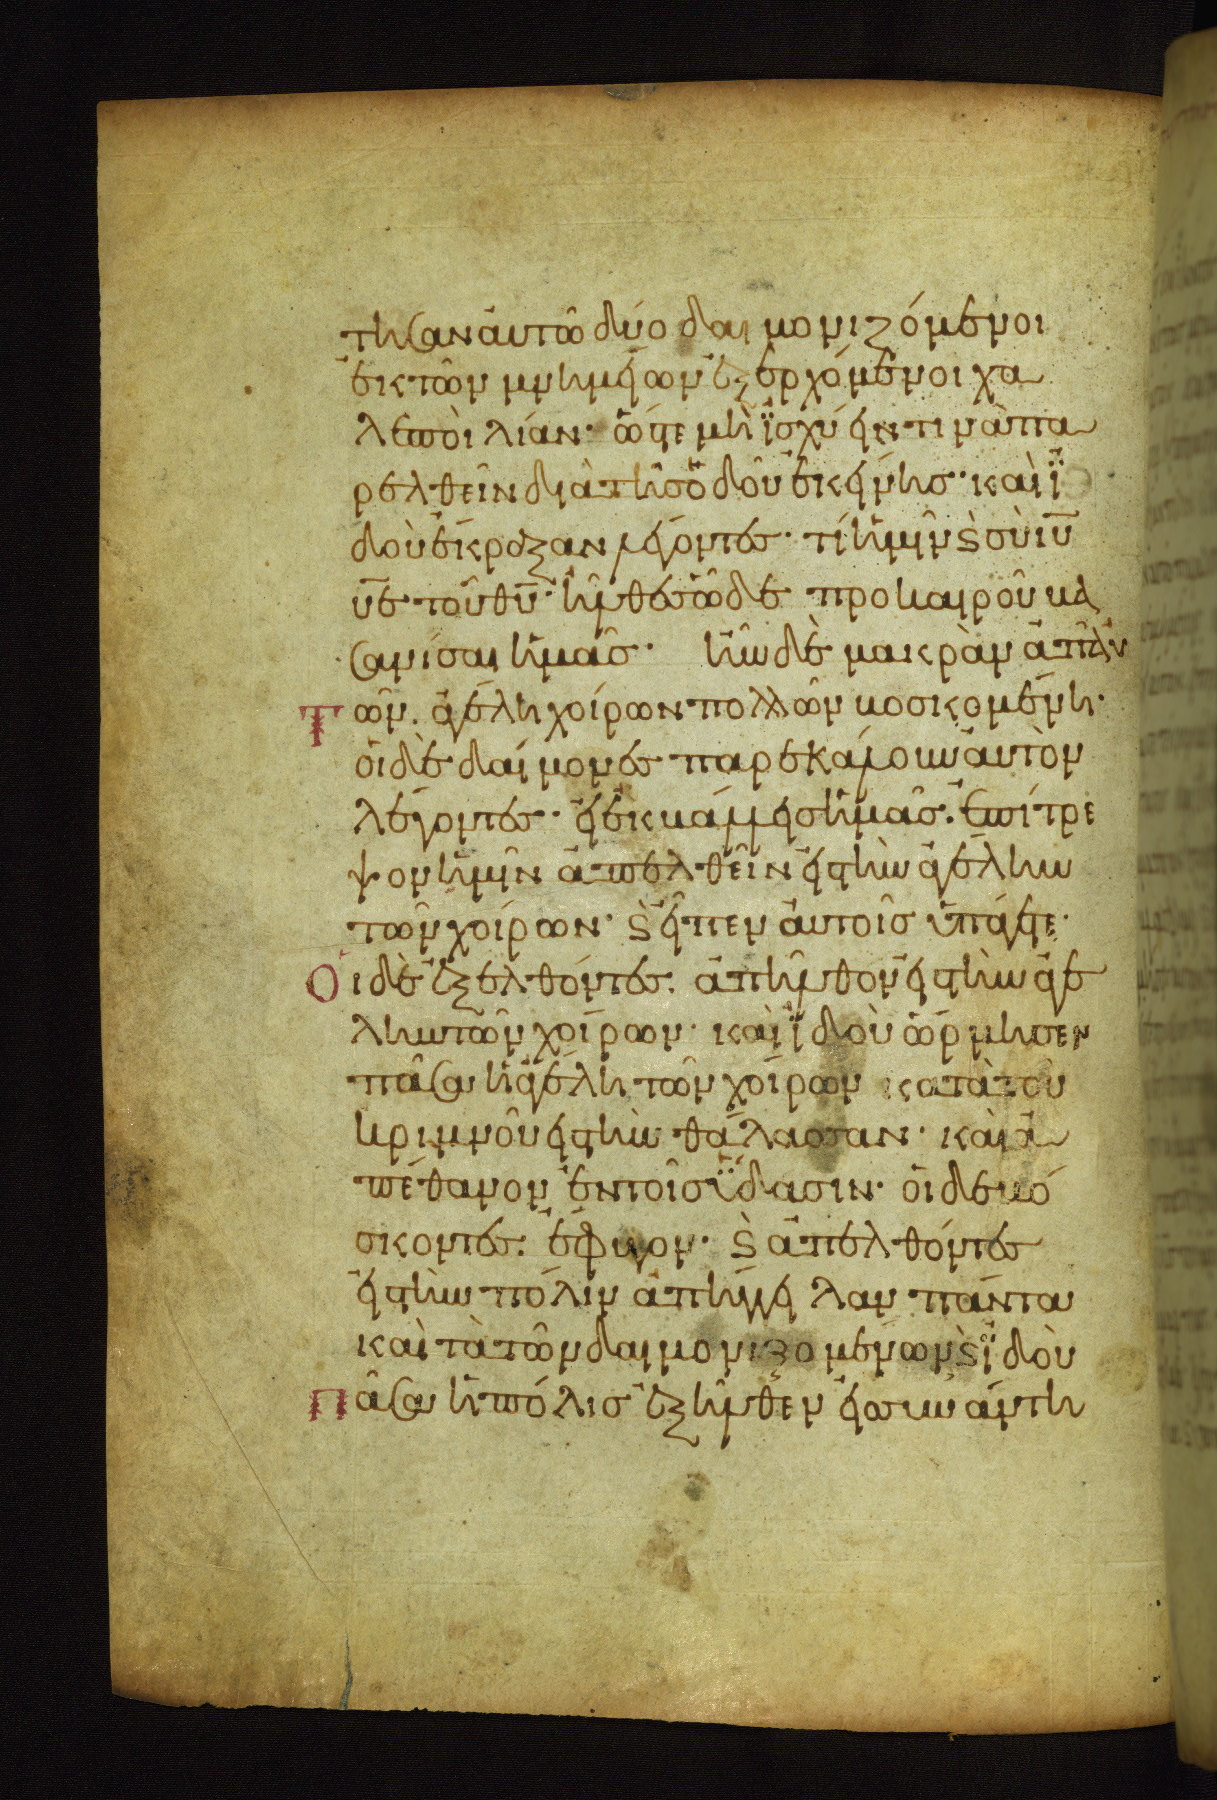 τησαν αὐτῶ δύο δαιμονιζόμενοι
ἐκ τῶν μνημείων ἐξερχόμενοι χα
λεποὶ λίαν· ὥστε μὴ ἰσχύειν τινὰ πα
ρελθεῖν διὰ τῆς ὁδοῦ ἐκείνης· καὶ ἰ
δοὺ ἔκραξαν λέγοντες· τί ἡμῖν ϗ σὺ ιυ
υἱὲ τοῦ θυ· ἦλθες ὧδε προ καιροῦ βα
σανίσαι ἡμᾶς· ἦν δὲ μακρὰν ἀπ' αὐ
τῶν. ἀγέλη χοίρων πολλῶν βοσκομένη·
οἱ δὲ δαίμονες παρεκάλουν αὐτὸν
λέγοντες· εἰ ἐκβάλλεις ἡμᾶς. ἐπίτρε
ψον ἡμῖν ἀπελθεῖν εἰς τὴν ἀγέλην
τῶν χοίρων· ϗ εἶπεν αὐτοῖς ὑπάγετε·
Οἱ δὲ ἐξελθόντες. ἀπῆλθον εἰς τὴν ἀγέ
λην τῶν χοίρων· καὶ ἰδοὺ ὥρμησεν
πᾶσα ἡ ἀγέλη τῶν χοίρων κατὰ τοῦ
κρημνοῦ εἰς τὴν θάλασσαν· καὶ ἀ
πέθανον ἐν τοῖς ὕδασιν· οἱ δὲ βό
σκοντες. ἔφυγον· ϗ ἀπελθόντες
εἰς τὴν πόλιν ἀπήγγειλαν πάντα
καὶ τὰ τῶν δαιμονιζομένων ϗ ἰδοὺ
πᾶσα ἡ πόλις ἐξῆλθεν εἰς συνάντη